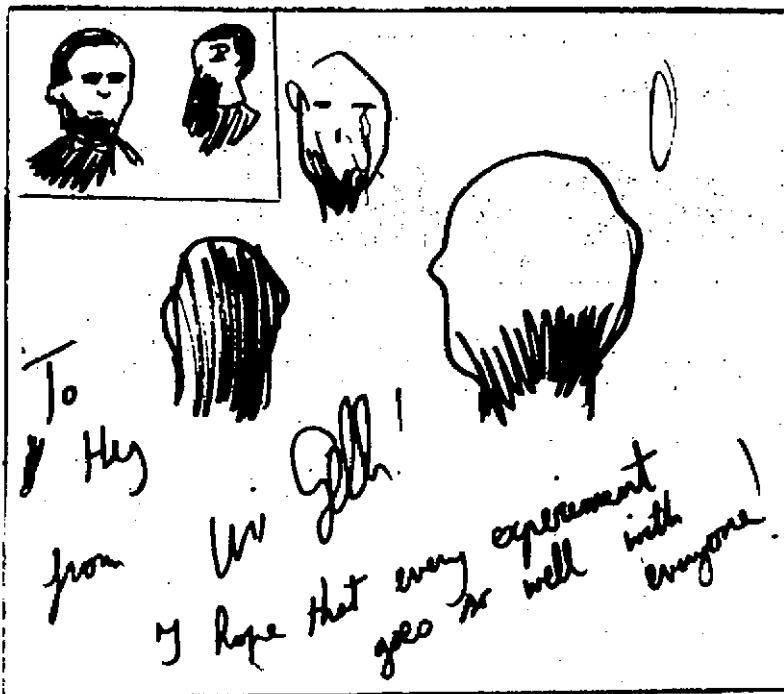 To
Hey
from Uri Geller!
I hope that every experiment
goes so well with
everyone!